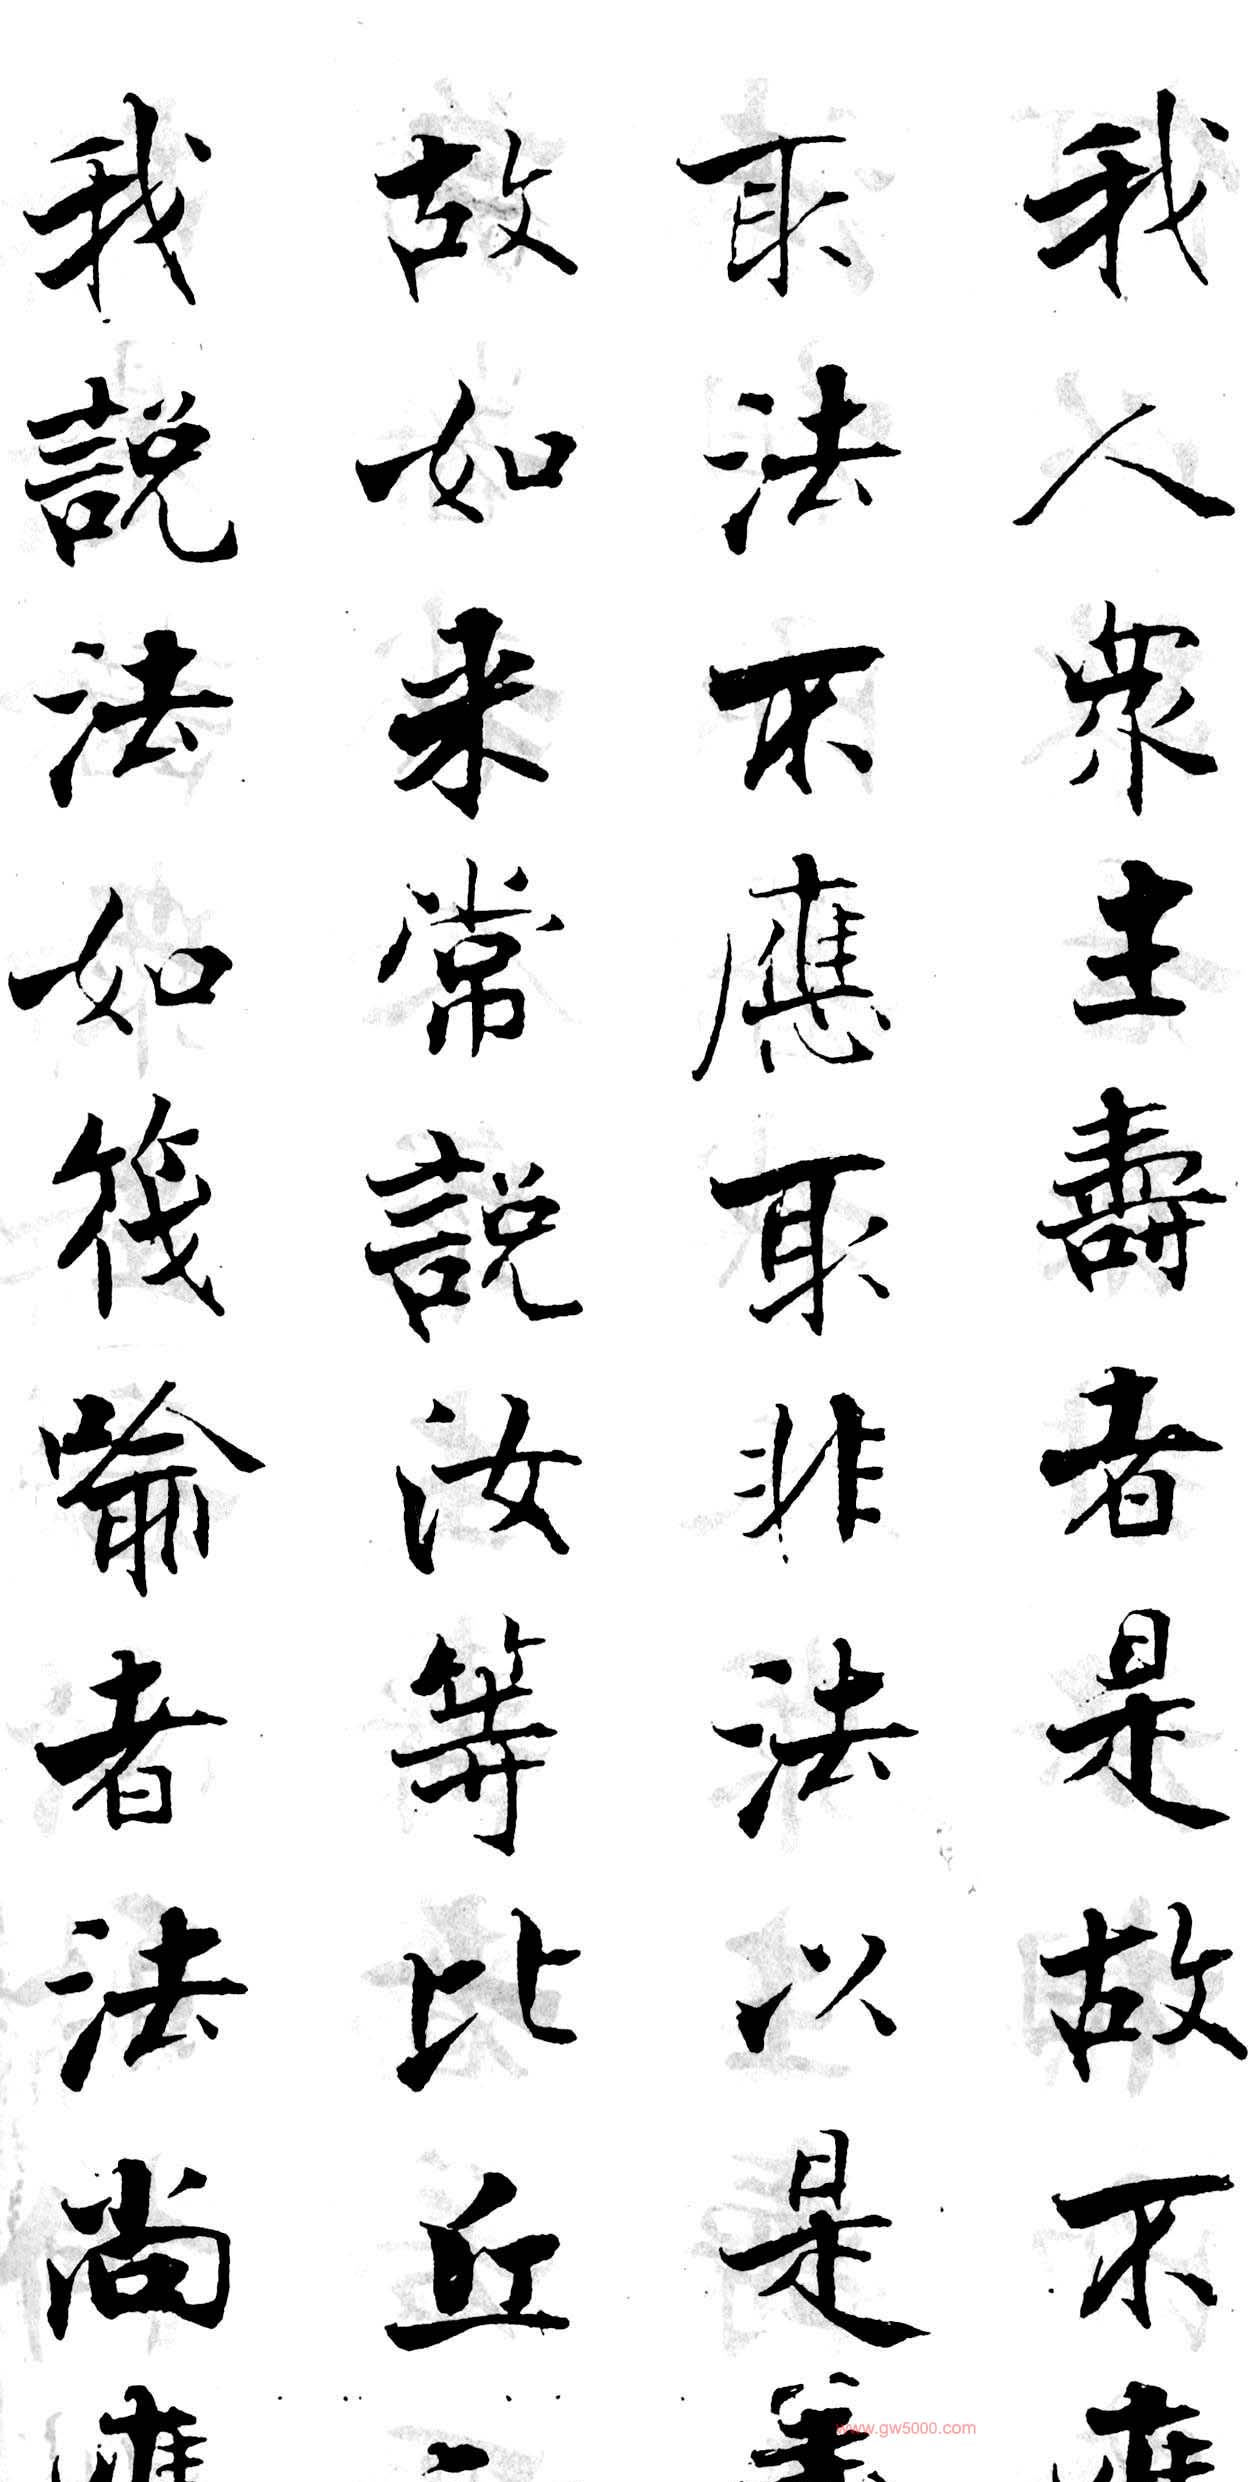 我人眾生壽者是故不
取法不應取非法以是
故如来常說汝等比丘
我說法如筏喻者法尚
www.gw5000.com